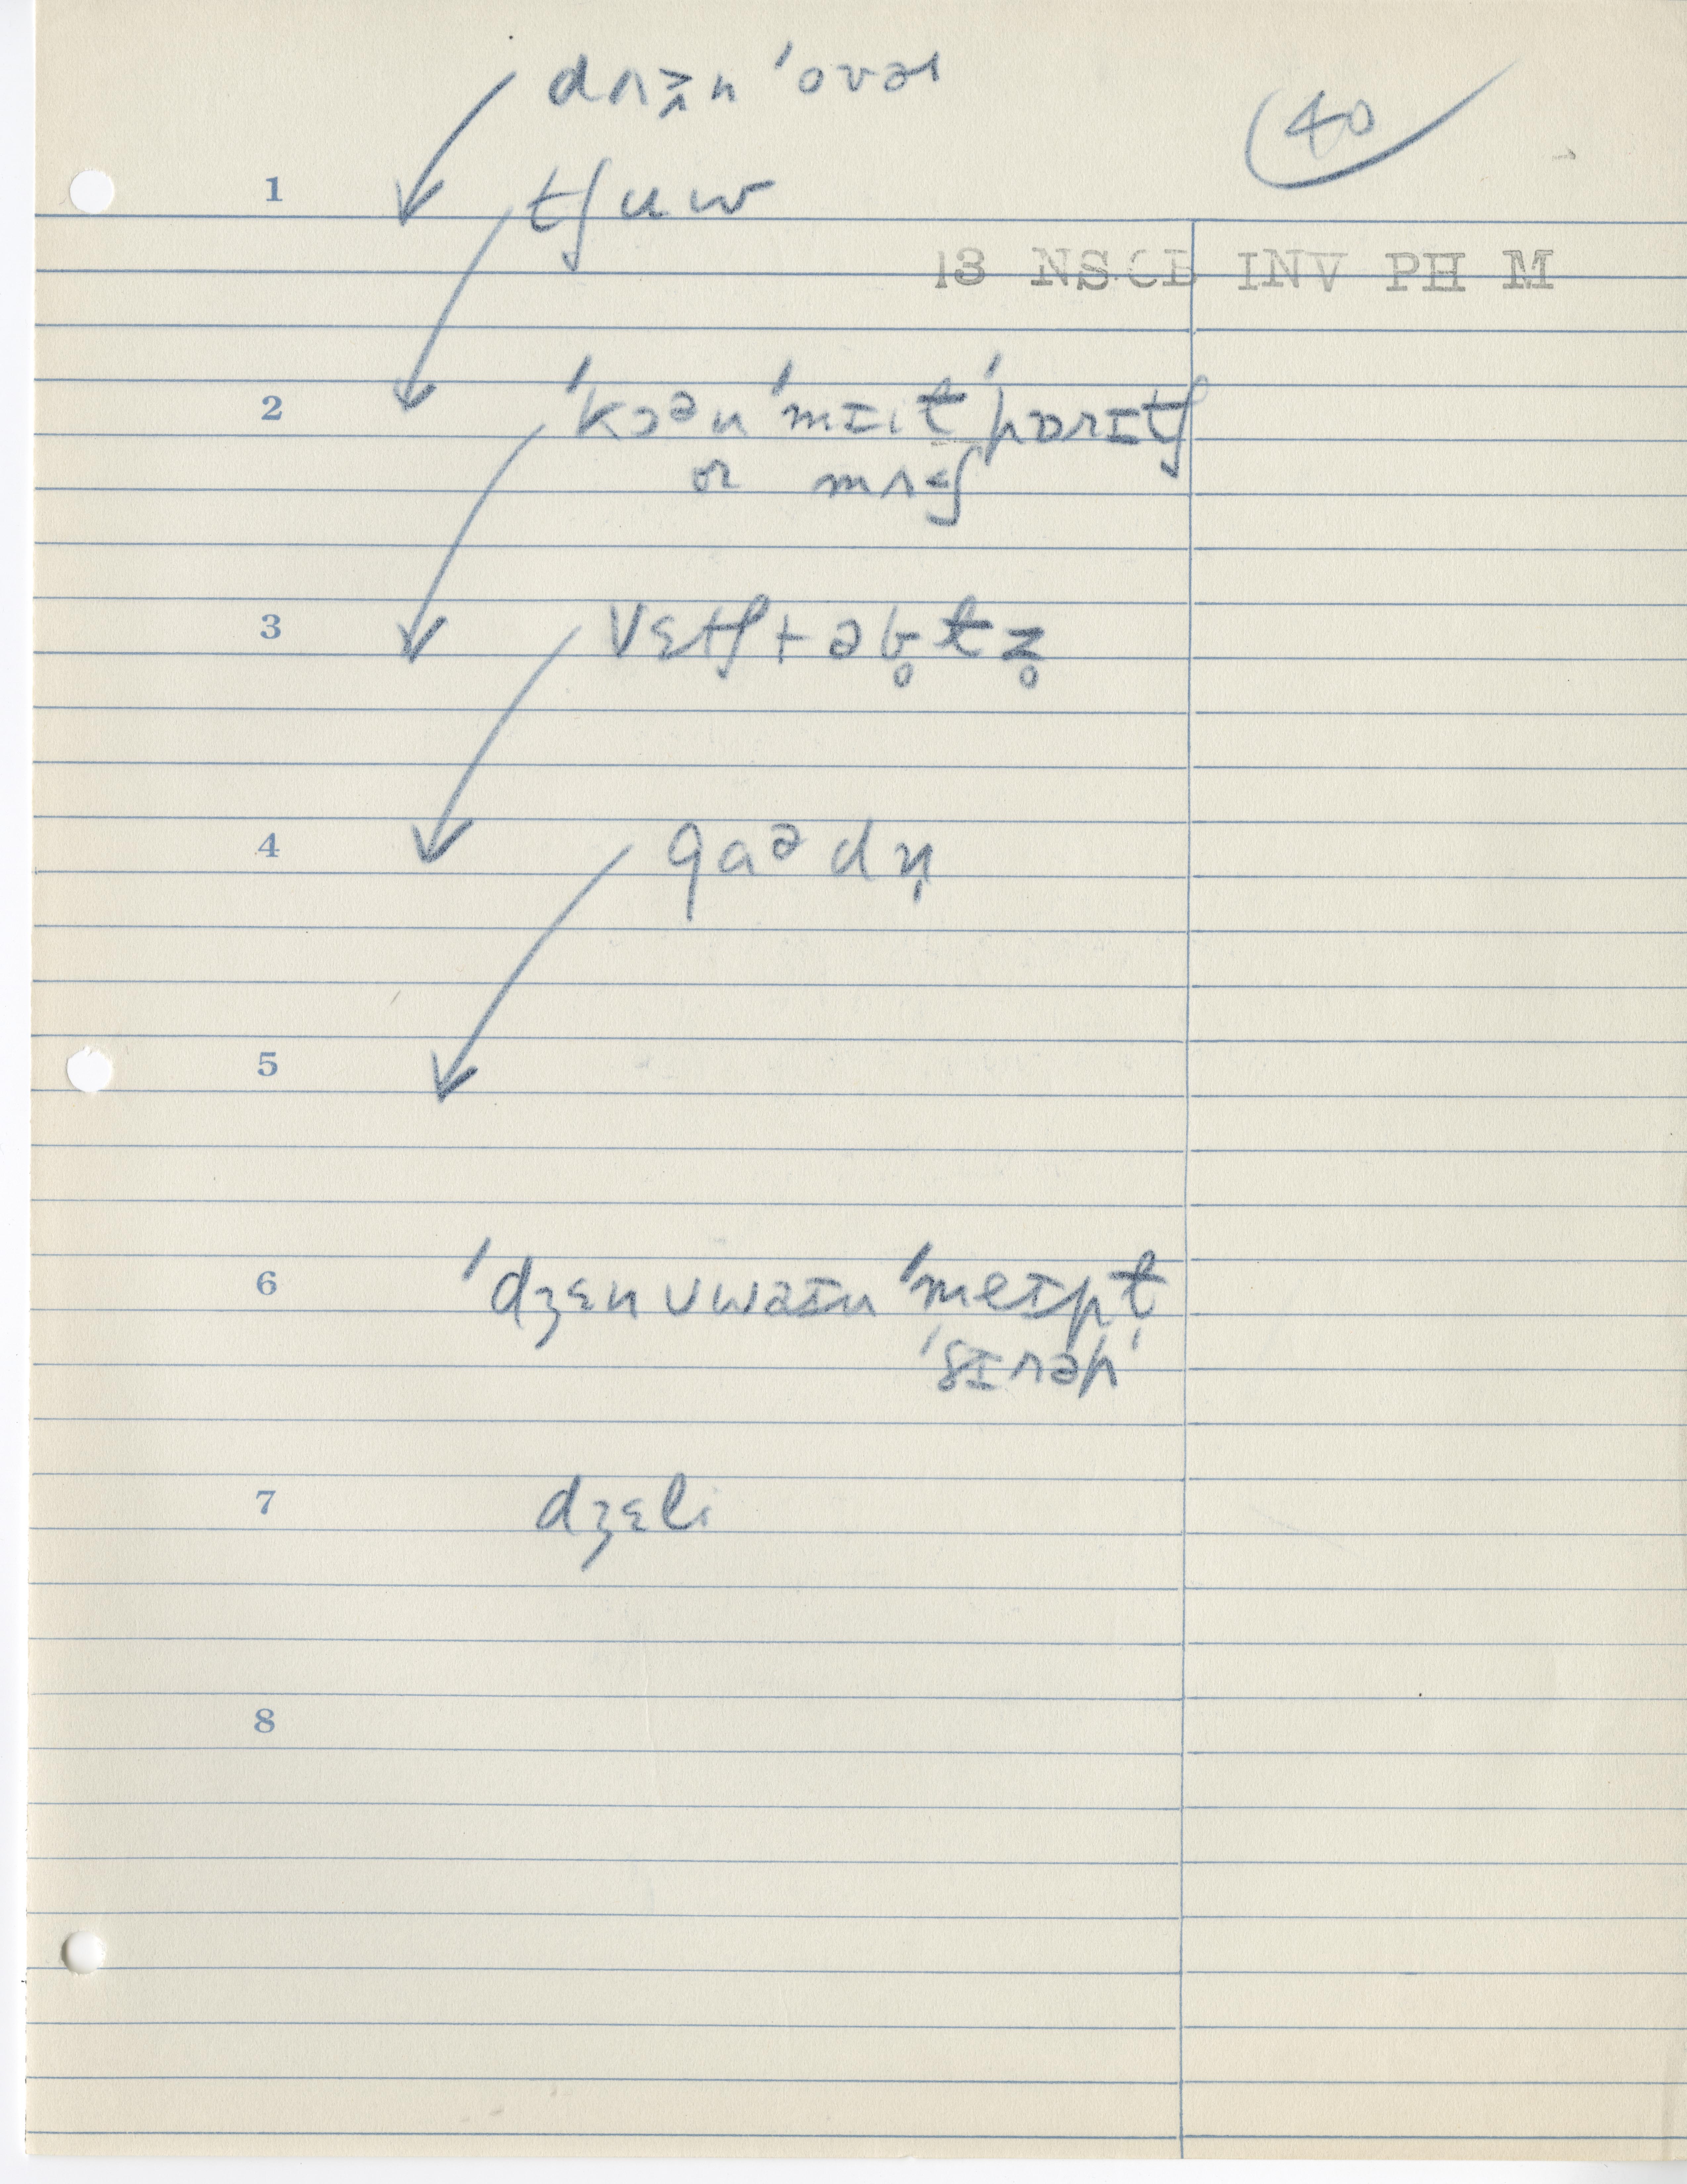 dʌɪn 'ovəɹ
40
1 tʃuw
13 NSCB INV PH M
2 'kɔᵊn 'mɪlt 'pɒrɪtʃ
or mʌʃ
3 vɛtʃtəb̥tz̥
4 gaᵊdn̩
5
6 'dʒɛnuwaɪn 'meɪpt
'sɪrəp'
7 dʒɛli
8